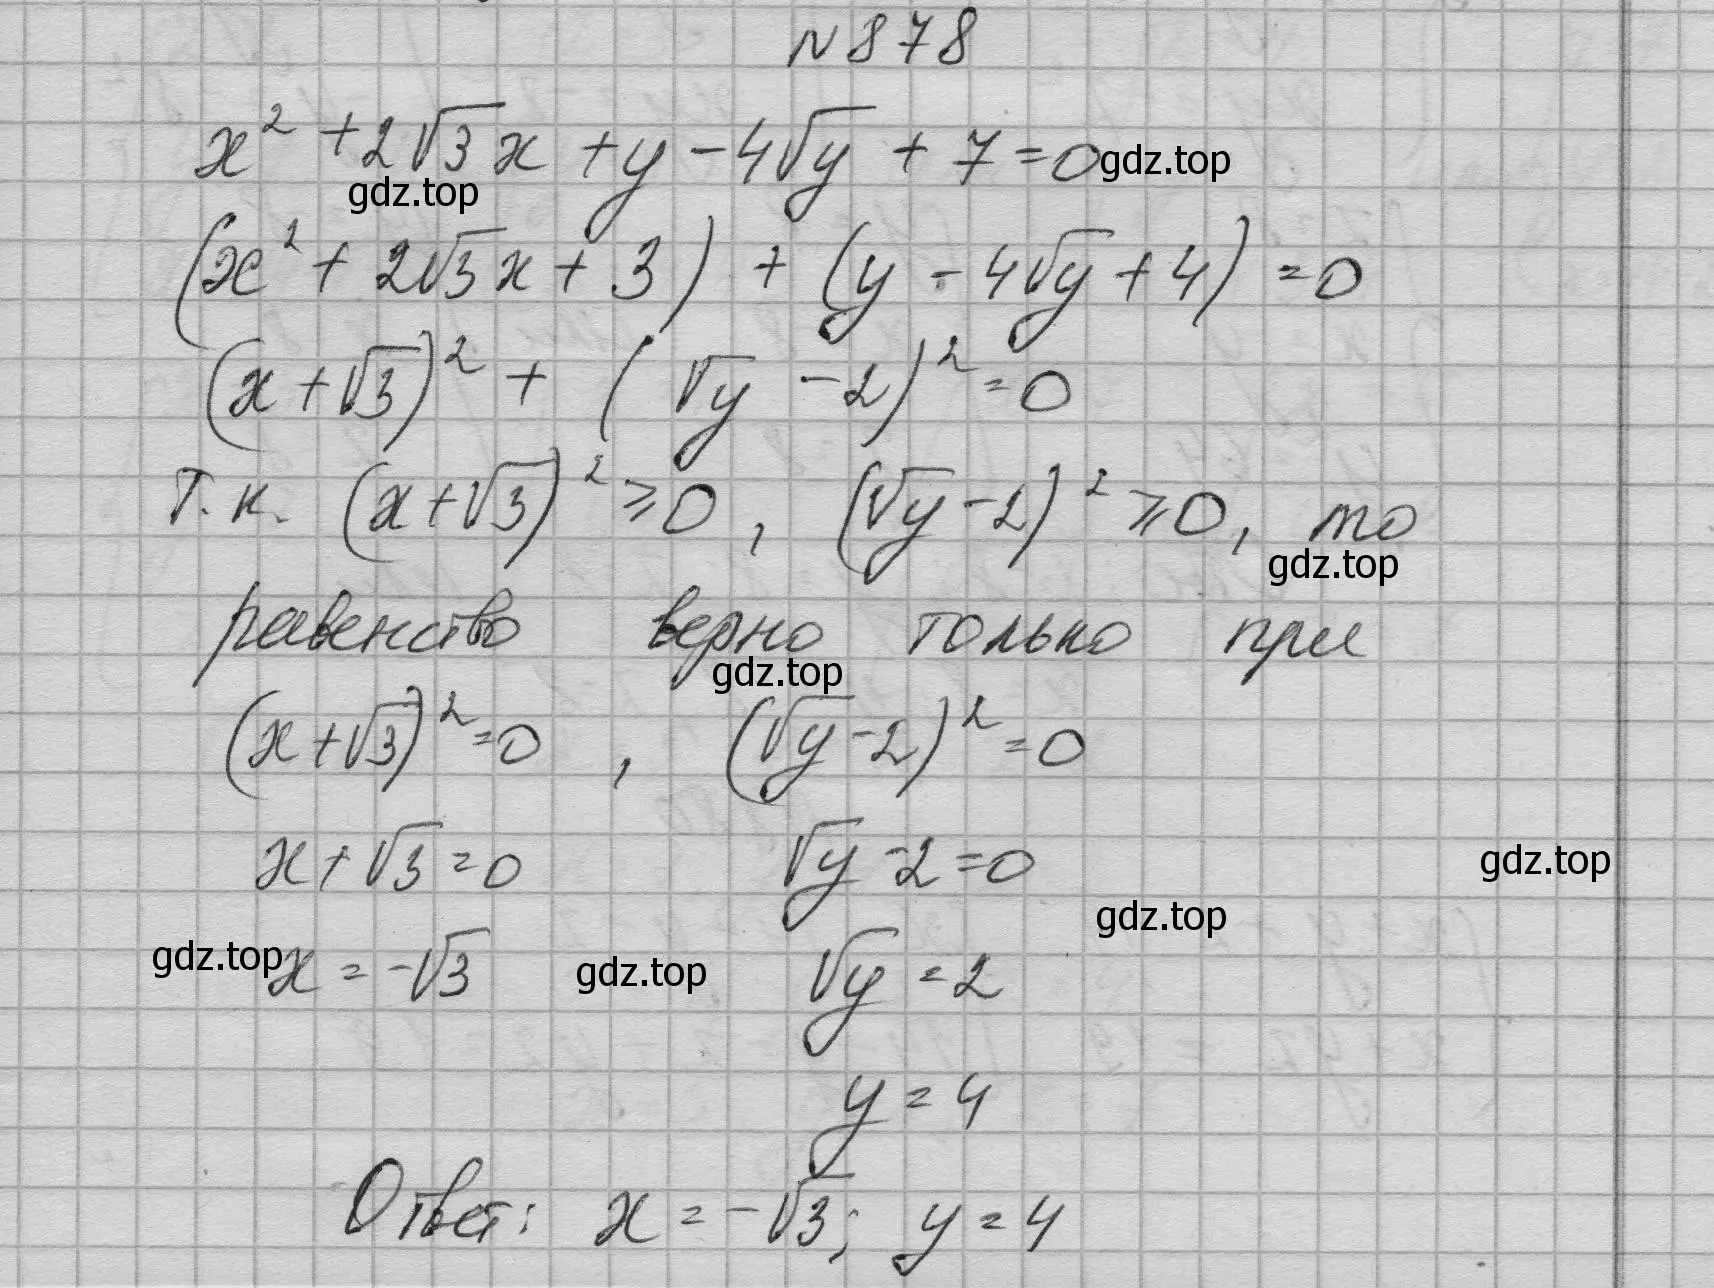 №878
x² + 2√3x + y - 4√y + 7 = 0 gdz.top
gdz.top
(x² + 2√3x + 3) + (y - 4√y + 4) = 0
(x + √3)² + (√y - 2)² = 0
т.к. (x + √3)² ⩾ 0, (√y - 2)² ⩾ 0, то
gdz.top
равенство верно только при
gdz.top
(x + √3)² = 0, (√y - 2)² = 0
x + √3 = 0 √y - 2 = 0 gdz.top
gdz.top
gdz.top x = -√3 gdz.top √y = 2
y = 4
Ответ: x = -√3; y = 4